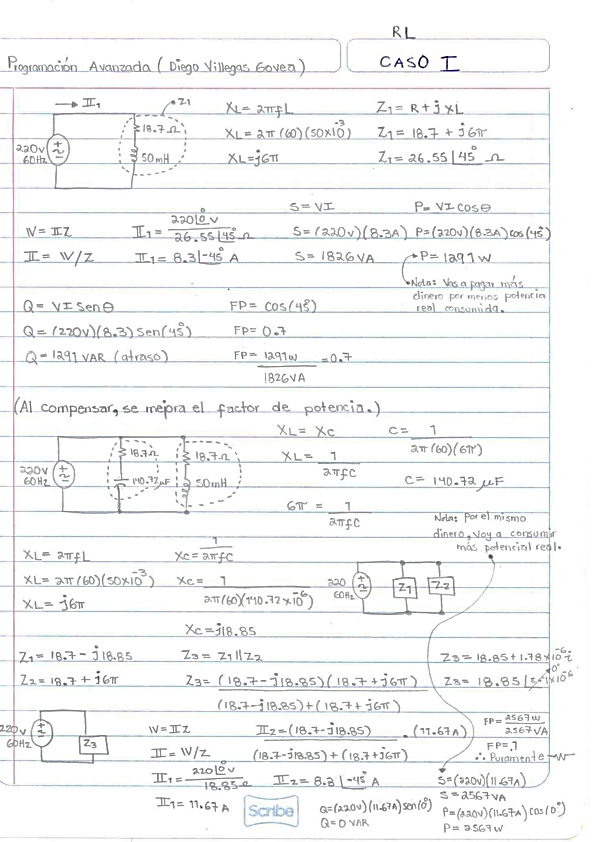 RL
Programación Avanzada (Diego Villegas Govea)
CASO I
II₁
Z1
220v
60Hz
18.7Ω
50mH
XL = 2πfL
XL = 2π (60)(50x10⁻³)
XL = j6π
Z₁ = R + j XL
Z₁ = 18.7 + j6π
Z₁ = 26.55 ∠45° Ω
V = IZ
I = V/Z
I₁ = 220∠0° v / 26.55∠45°
I₁ = 8.3∠-45° A
S = VI
S = (220v)(8.3A)
S = 1826 VA
P = VI COSθ
P = (220v)(8.3A) cos(45°)
P = 1291 W
Nota: Vas a pagar más
dinero por menos potencia
real consumida.
Q = VI Senθ
Q = (220v)(8.3) Sen(45°)
Q = 1291 VAR (atraso)
FP = COS(45°)
FP = 0.7
FP = 1291w / 1826VA = 0.7
(Al compensar, se mejora el factor de potencia.)
220v
60Hz
18.7Ω
140.72μF
18.7Ω
50mH
XL = XC
XL = 1 / 2πfC
6π = 1 / 2πfC
C = 1 / 2π(60)(6π)
C = 140.72 μF
Nota: Por el mismo
dinero, voy a consumir
más potencial real.
XL = 2πfL
XL = 2π(60)(50x10⁻³)
XL = j6π
XC = 1 / 2πfC
XC = 1 / 2π(60)(140.72x10⁻⁶)
XC = j18.85
220
60Hz
Z1
Z2
Z₁ = 18.7 - j18.85
Z₂ = 18.7 + j6π
Z₃ = Z₁ || Z₂
Z₃ = (18.7 - j18.85)(18.7 + j6π) / (18.7 - j18.85) + (18.7 + j6π)
Z₃ = 18.85 + 1.78x10⁻⁶ i
Z₃ = 18.85 ∠5.41x10⁻⁶ 0°
220v
60Hz
Z3
V = IZ
I = V/Z
I₁ = 220∠0° v / 18.85Ω
I₁ = 11.67 A
I₂ = (18.7 - j18.85) / (18.7 - j18.85) + (18.7 + j6π) · (11.67A)
I₂ = 8.3∠-45° A
FP = 2567w / 2567VA
FP = 1
∴ Puramente
S = (220v)(11.67A)
S = 2567VA
P = (220v)(11.67A) cos(0°)
P = 2567w
Q = (220v)(11.67A) sen(0°)
Q = 0 VAR
Scribe